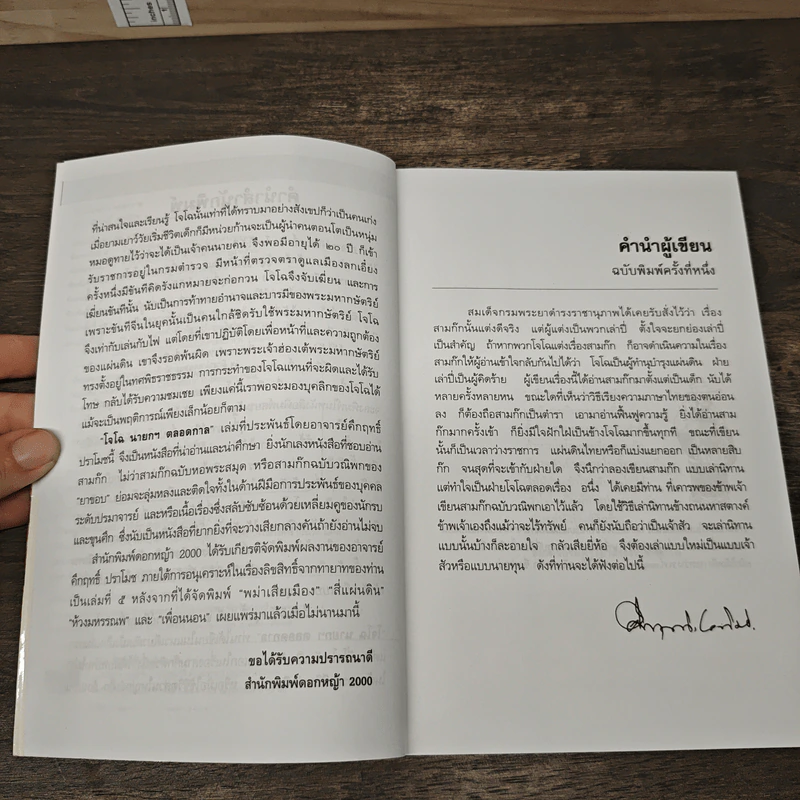 inches
ที่น่าสนใจและเรียนรู้ โจโฉนั้นเท่าที่ได้ทราบมาอย่างสังเขปก็ว่าเป็นคนเก่ง
เมื่อยามเยาว์วัยเริ่มชีวิตเด็กก็มีหน่วยก้านจะเป็นผู้นำคนตอนโตเป็นหนุ่ม
หมอดูทายไว้ว่าจะได้เป็นเจ้าคนนายคน จึงพอมีอายุได้ ๒๐ ปี ก็เข้า
รับราชการอยู่ในกรมตำรวจ มีหน้าที่ตรวจตราดูแลเมืองลกเอี๋ยง
ครั้งหนึ่งมีขันทีคิดรังแกหมายจะก่อกวน โจโฉจึงจับเฆี่ยน และการ
เฆี่ยนขันทีนั้น นับเป็นการท้าทายอำนาจและบารมีของพระมหากษัตริย์
เพราะขันทีจีนในยุคนั้นเป็นคนใกล้ชิดรับใช้พระมหากษัตริย์ โจโฉ
จึงเท่ากับเล่นกับไฟ แต่โดยที่เขาปฏิบัติโดยเพื่อหน้าที่และความถูกต้อง
ของแผ่นดิน เขาจึงรอดพ้นผิด เพราะพระเจ้าฮ่องเต้พระมหากษัตริย์
ทรงตั้งอยู่ในทศพิธราชธรรม การกระทำของโจโฉแทนที่จะผิดและได้รับ
โทษ กลับได้รับความชมเชย เพียงแค่นี้เราพอจะมองบุคลิกของโจโฉได้
แม้จะเป็นพฤติการณ์เพียงเล็กน้อยก็ตาม
"โจโฉ นายกฯ ตลอดกาล" เล่มที่ประพันธ์โดยอาจารย์คึกฤทธิ์
ปราโมชนี้ จึงเป็นหนังสือที่น่าอ่านและน่าศึกษา ยิ่งนักเลงหนังสือที่ชอบอ่าน
สามก๊ก ไม่ว่าสามก๊กฉบับหอพระสมุด หรือสามก๊กฉบับวณิพกของ
"ยาขอบ" ย่อมจะลุ่มหลงและติดใจทั้งในด้านฝีมือการประพันธ์ของบุคคล
ระดับปรมาจารย์ และหรือเนื้อเรื่องซึ่งสลับซับซ้อนด้วยเหลี่ยมคูของนักรบ
และขุนศึก ซึ่งนับเป็นหนังสือที่ยากยิ่งที่จะวางเสียกลางคันถ้ายังอ่านไม่จบ
สำนักพิมพ์ดอกหญ้า 2000 ได้รับเกียรติจัดพิมพ์ผลงานของอาจารย์
คึกฤทธิ์ ปราโมช ภายใต้การอนุเคราะห์ในเรื่องลิขสิทธิ์จากทายาทของท่าน
เป็นเล่มที่ ๕ หลังจากที่ได้จัดพิมพ์ "พม่าเสียเมือง" "สี่แผ่นดิน"
"ห้วงมหรรณพ" และ "เพื่อนนอน" เผยแพร่มาแล้วเมื่อไม่นานมานี้
ขอได้รับความปรารถนาดี
สำนักพิมพ์ดอกหญ้า 2000
คำนำผู้เขียน
ฉบับพิมพ์ครั้งที่หนึ่ง
สมเด็จกรมพระยาดำรงราชานุภาพได้เคยรับสั่งไว้ว่า เรื่อง
สามก๊กนั้นแต่งดีจริง แต่ผู้แต่งเป็นพวกเล่าปี่ ตั้งใจจะยกย่องเล่าปี่
เป็นสำคัญ ถ้าหากพวกโจโฉแต่งเรื่องสามก๊ก ก็อาจดำเนินความในเรื่อง
สามก๊กให้ผู้อ่านเข้าใจกลับกันไปได้ว่า โจโฉเป็นผู้ทำนุบำรุงแผ่นดิน ฝ่าย
เล่าปี่เป็นผู้คิดร้าย ผู้เขียนเรื่องนี้ได้อ่านสามก๊กมาตั้งแต่เป็นเด็ก นับได้
หลายครั้งหลายหน ขณะใดที่เห็นว่าวิธีเรียงความภาษาไทยของตนอ่อน
ลง ก็ต้องถือสามก๊กเป็นตำรา เอามาอ่านฟื้นฟูความรู้ ยิ่งได้อ่านสาม
ก๊กมากครั้งเข้า ก็ยิ่งมีใจฝักใฝ่เป็นข้างโจโฉมากขึ้นทุกที ขณะที่เขียน
นั้นก็เป็นเวลาว่างราชการ แผ่นดินไทยหรือก็แบ่งแยกออก เป็นหลายสิบ
ก๊ก จนสุดที่จะเข้ากับฝ่ายใด จึงนึกว่าลองเขียนสามก๊ก แบบเล่านิทาน
แต่ทำใจเป็นฝ่ายโจโฉตลอดเรื่อง อนึ่ง ได้เคยมีท่าน ที่เคารพของข้าพเจ้า
เขียนสามก๊กฉบับวณิพกเอาไว้แล้ว โดยใช้วิธีเล่านิทานข้างถนนหาสตางค์
ข้าพเจ้าเองถึงแม้ว่าจะไร้ทรัพย์ คนก็ยังนับถือว่าเป็นเจ้าสัว จะเล่านิทาน
แบบนั้นบ้างก็ละอายใจ กลัวเสียยี่ห้อ จึงต้องเล่าแบบใหม่เป็นแบบเจ้า
สัวหรือแบบนายทุน ดังที่ท่านจะได้ฟังต่อไปนี้